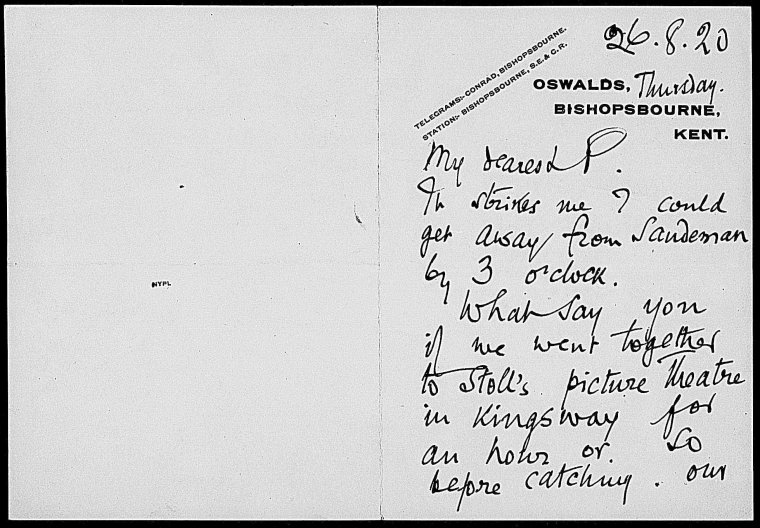 NYPL
26.8.20
TELEGRAMS:- CONRAD, BISHOPSBOURNE.
STATION:- BISHOPSBOURNE, S.E. & C.R.
OSWALDS, Thursday.
BISHOPSBOURNE,
KENT.
My dearest P.
It strikes me I could
get away from Sandeman
by 3 o'clock.
What say you
if we went together
to Stoll's picture Theatre
in Kingsway for
an hour or so
before catching our